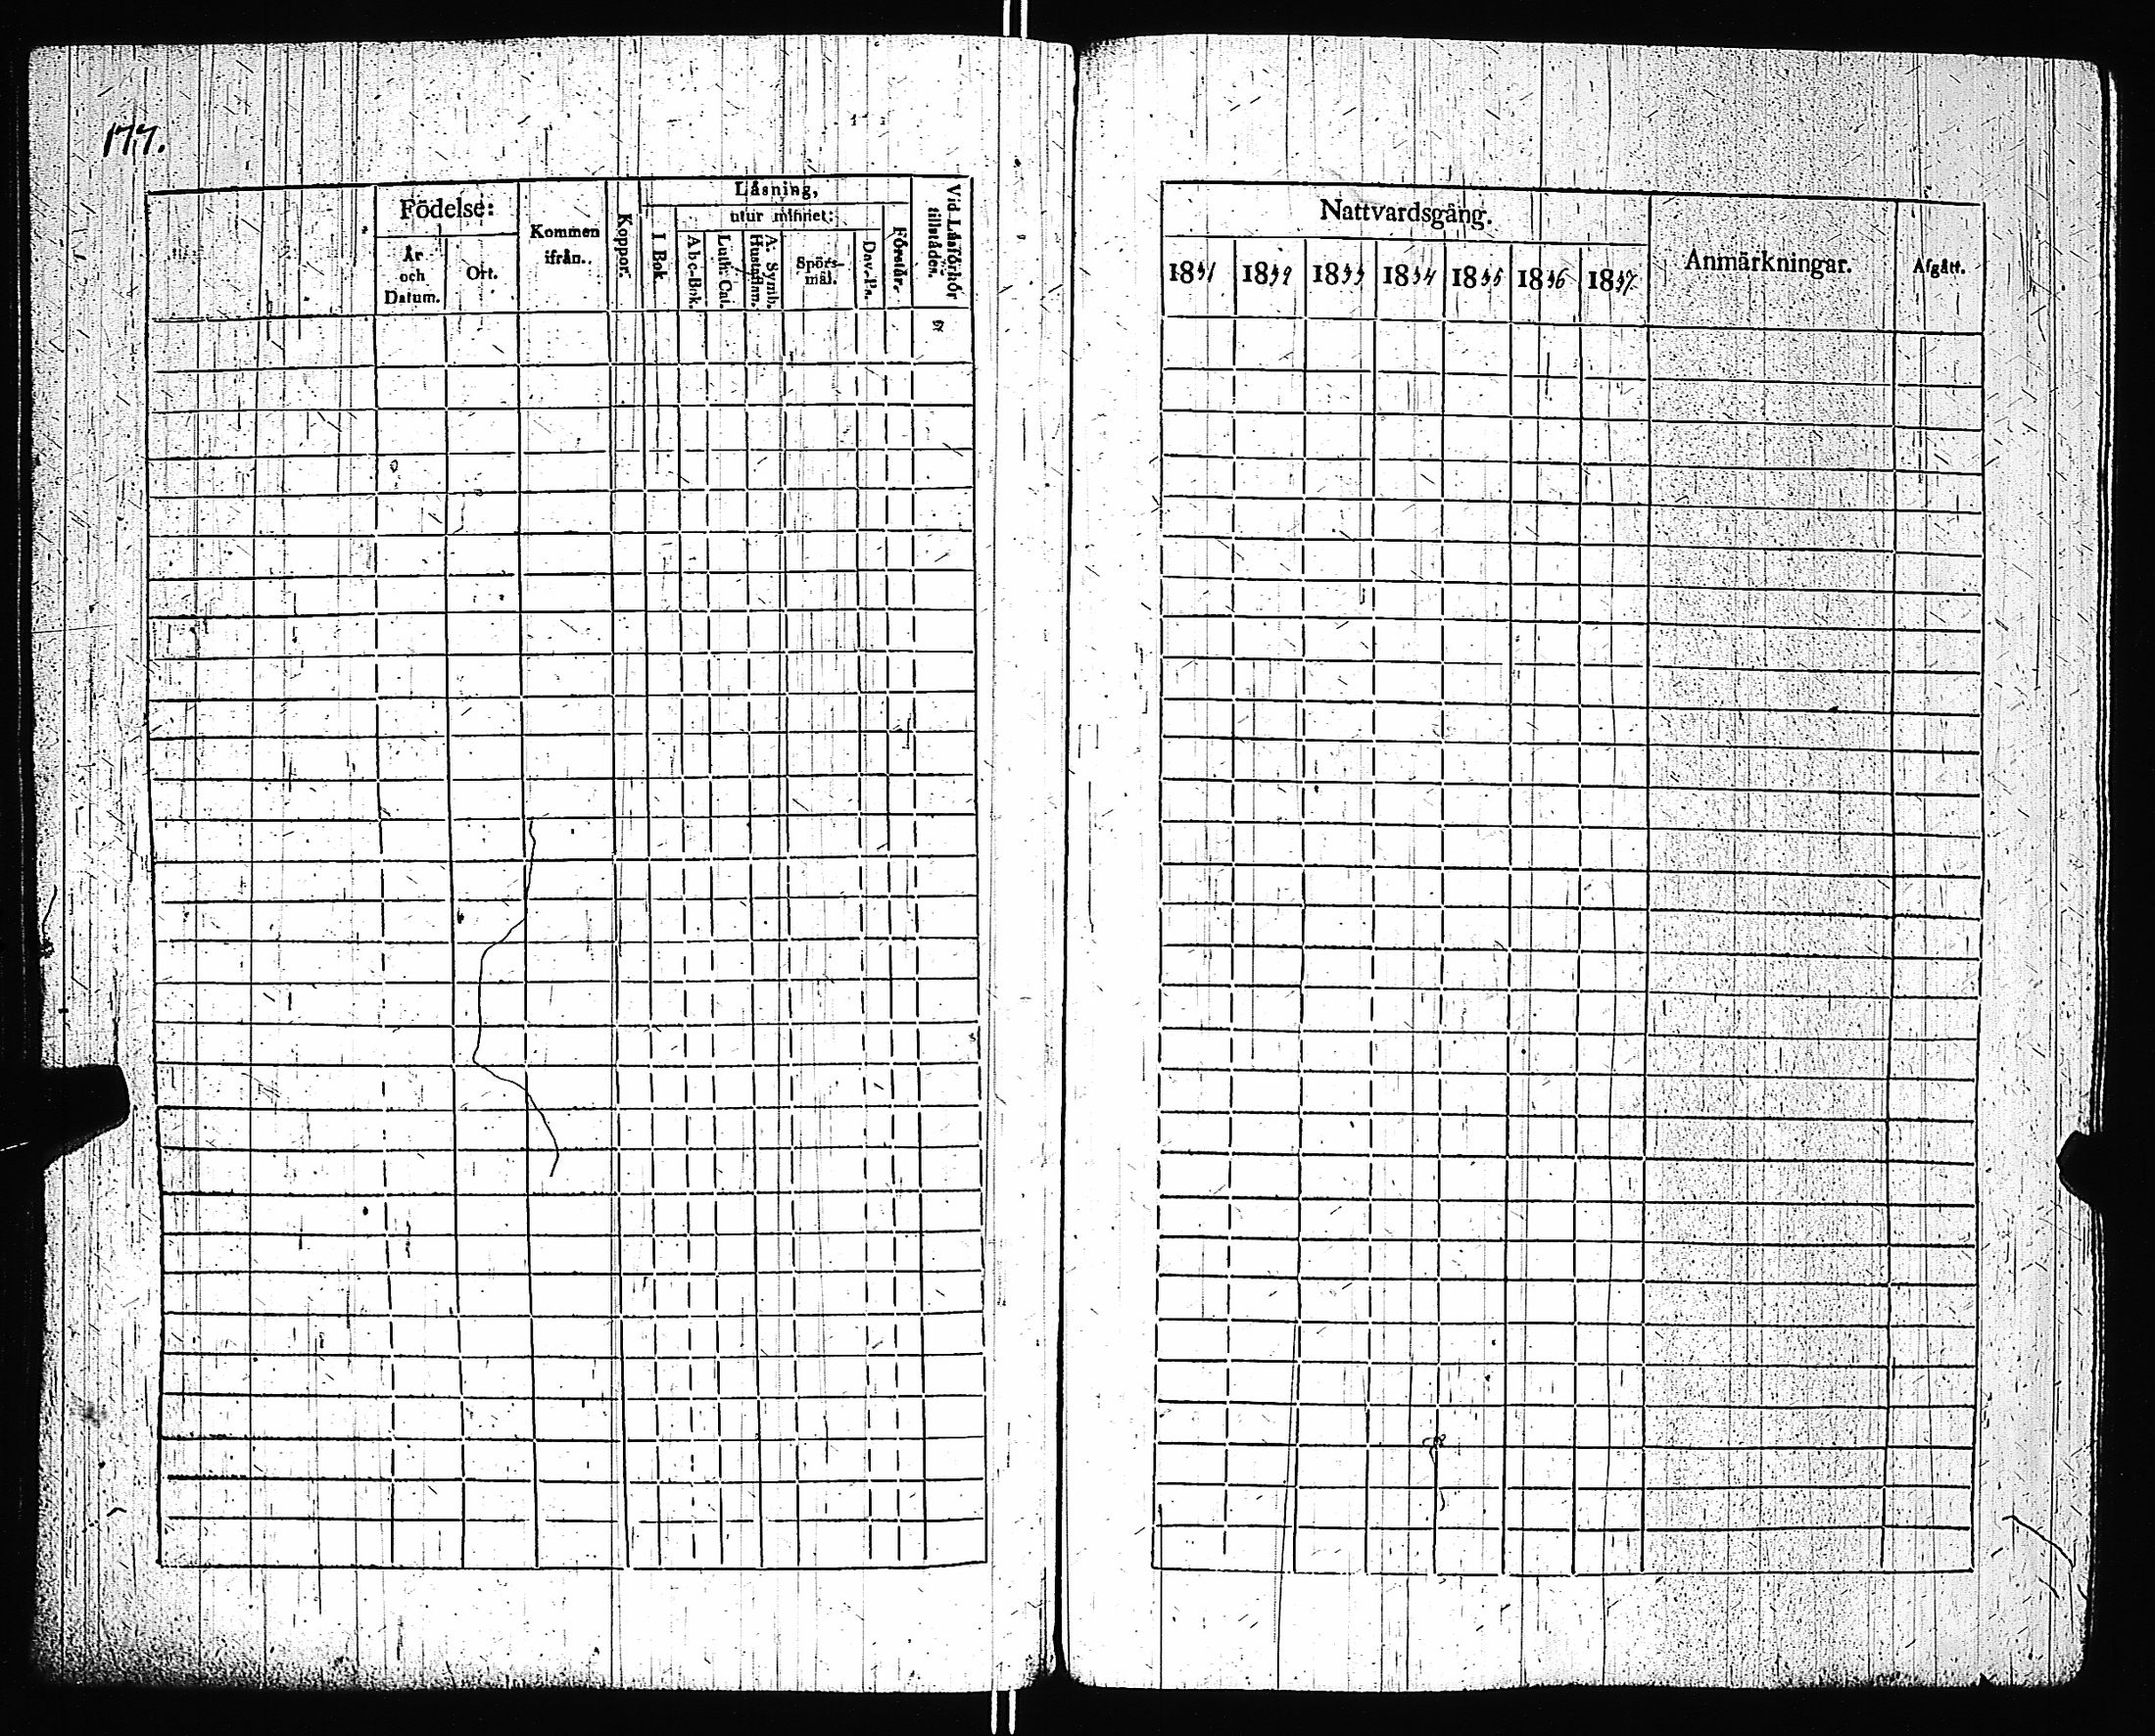 177.
Födelse:
År
och
Datum.
Ort.
Kommen
ifrån.
Koppor.
Läsning,
utur minnet:
I Bok.
A b c-Bok.
Luth: Cat.
A. Symb.
Hustaflan.
Spörs-
mål.
Dav. Ps.
Förstår.
Vid Läsförhör
tillstädes.
Nattvardsgång.
1831 1832 1833 1834 1835 1836 1837
Anmärkningar.
Afgått.